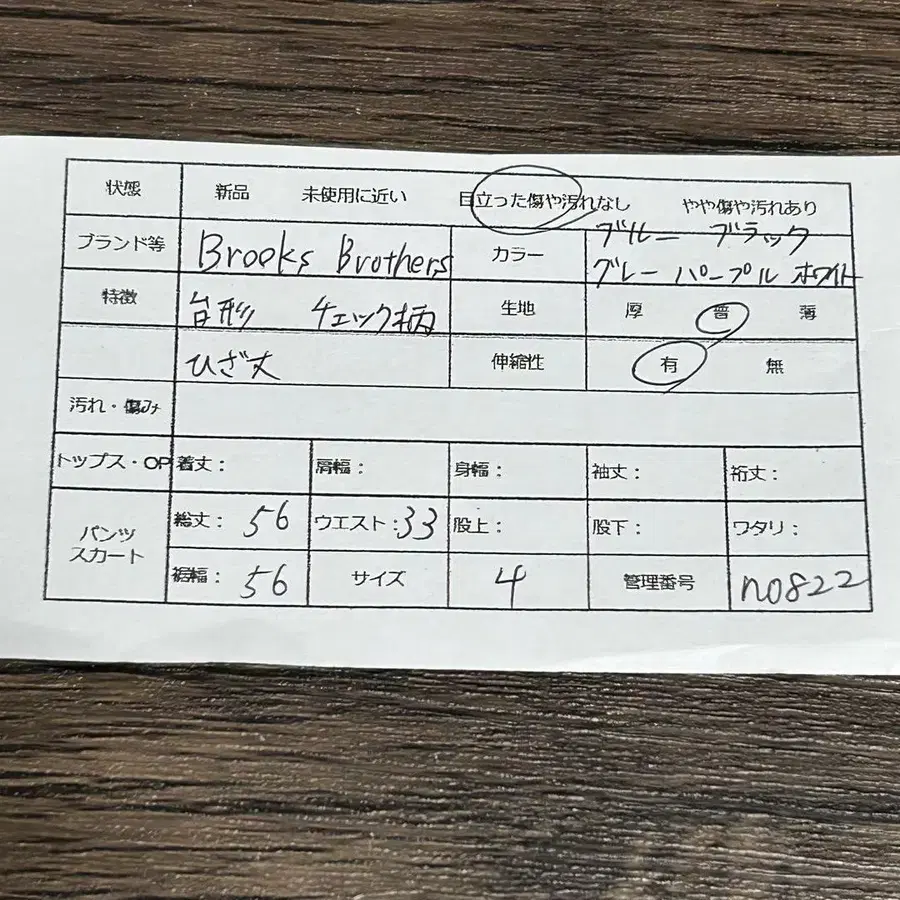 状態 新品 未使用に近い 目立った傷や汚れなし やや傷や汚れあり
ブランド等 Brooks Brothers カラー ブルー ブラック
グレー パープル ホワイト
特徴 台形 チェック柄 生地 厚 普 薄
ひざ丈 伸縮性 有 無
汚れ・傷み
トップス・OP 着丈: 肩幅: 身幅: 袖丈: 裄丈:
パンツ
スカート
総丈: 56 ウエスト: 33 股上: 股下: ワタリ:
裾幅: 56 サイズ 4 管理番号 n0822